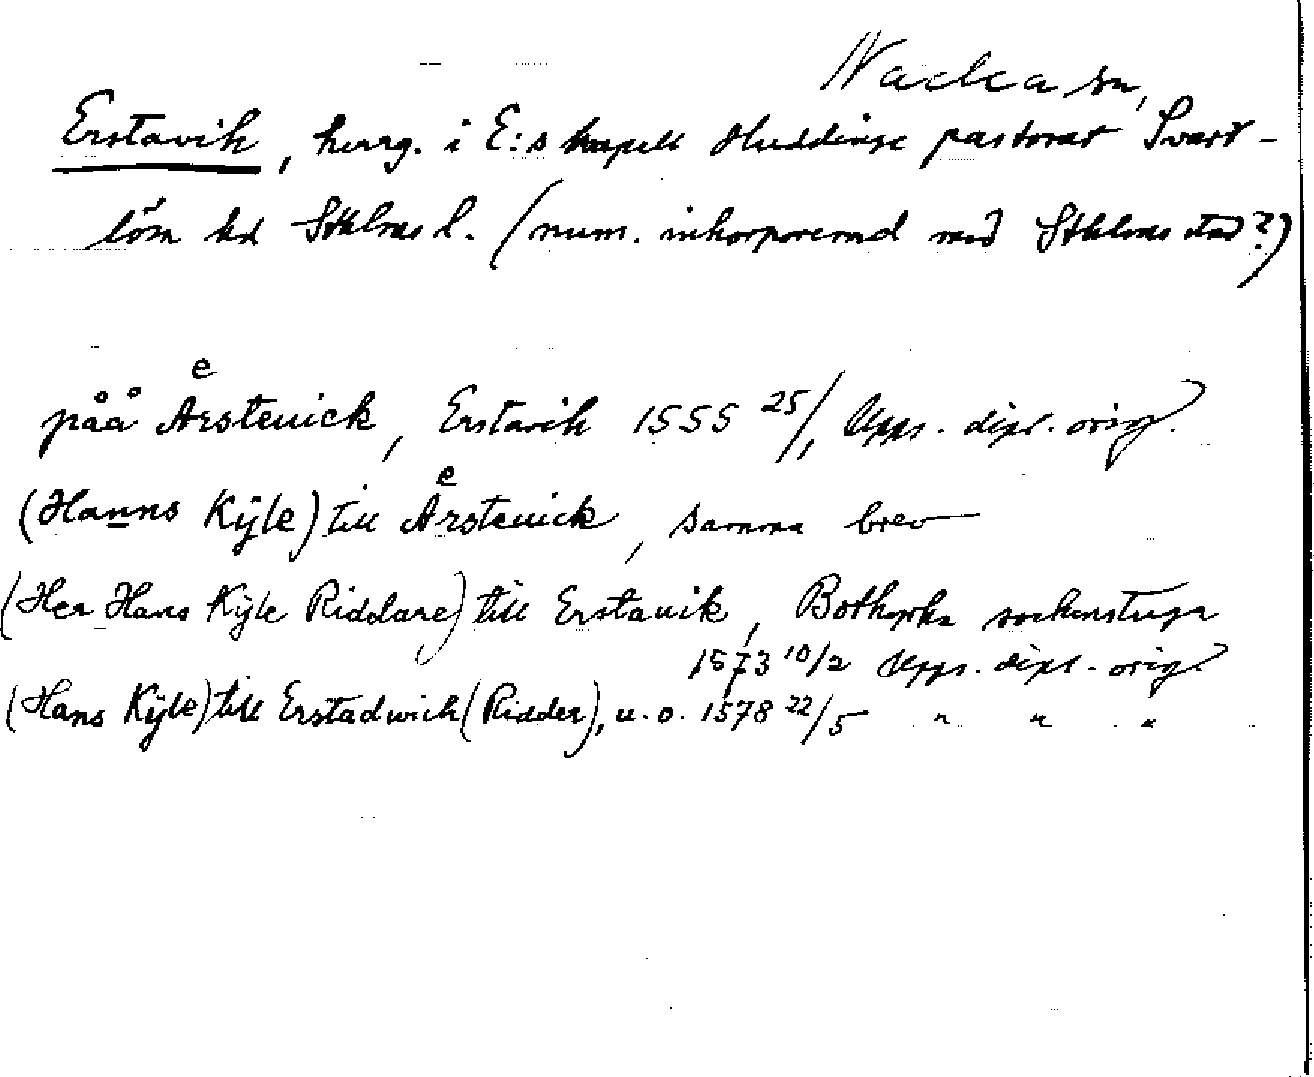 Nacka sn,
Erstavik, herrg. i E:s kapell Huddinge pastorat Svart-
lösa hd Sthlms l. (num. inkorporerad med Sthlms stad?)
påå Aͤrstenick, Erstavik 1555 25/1, Upps. dipl. orig.
(Hanns Kÿle) till Aͤrstenick, samma brev
(Her Hans Kÿle Riddare) till Erstauik, Bothyrka sockenstuga
1573 10/2 Upps. dipl. orig.
(Hans Kÿle) till Erstadwich (Ridder), u.o. 1578 22/5 " " "